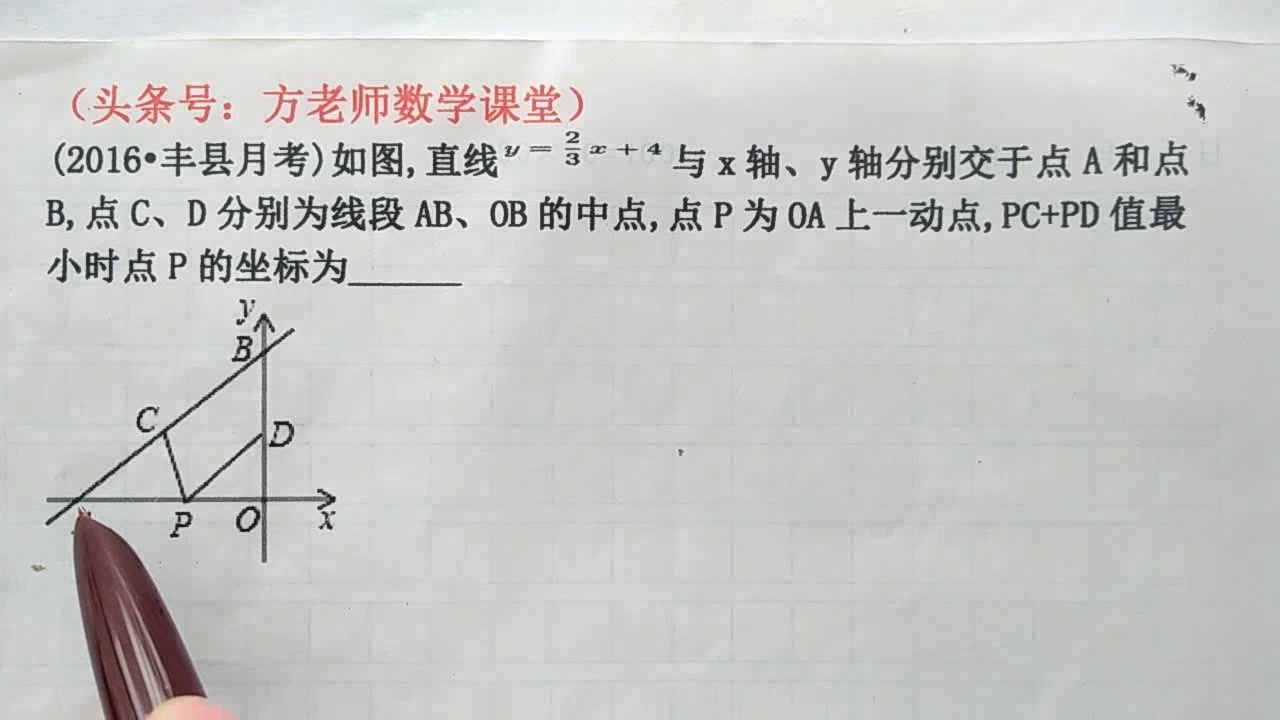 （头条号：方老师数学课堂）
(2016•丰县月考)如图,直线y=2/3x+4与x轴、y轴分别交于点A和点
B,点C、D分别为线段AB、OB的中点,点P为OA上一动点,PC+PD值最
小时点P的坐标为______
y
B
C
D
P
O
x